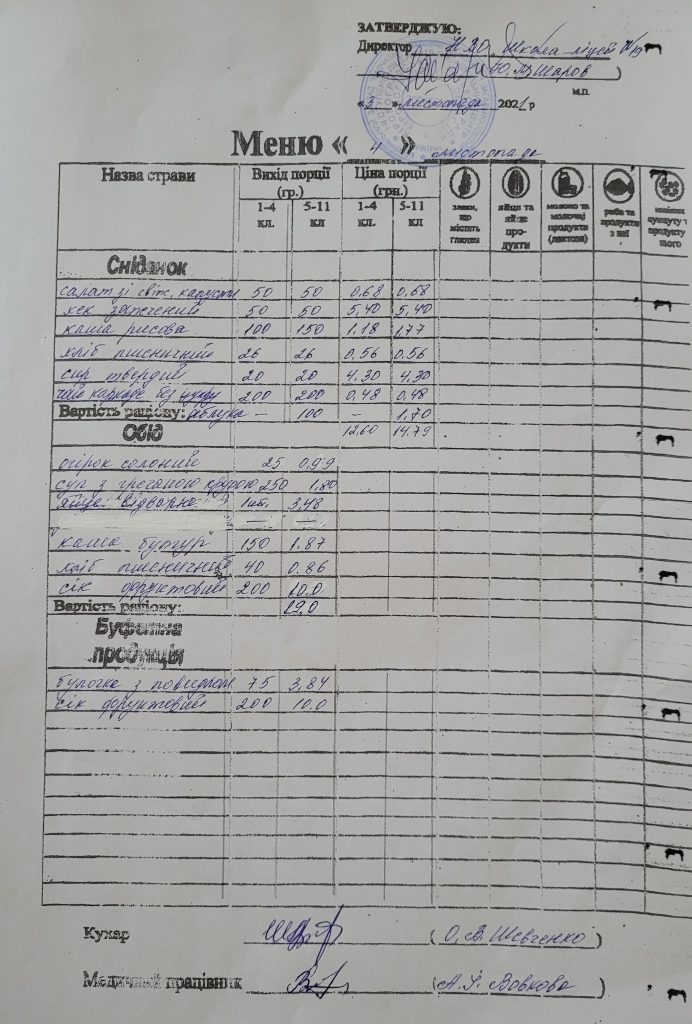 ЗАТВЕРДЖУЮ:
Директор НВО "Школа-ліцей №19
Ю. Ашаров )
м.п.
« 3 » листопада 2021 р
Меню « 4 » листопада
Назва страви Вихід порції (гр.) Ціна порції (грн.) злаки, що містять глютен яйця та яйце продукти молоко та молочні продукти (лактоза) риба та продукти з неї насіння кунжуту т продукту нього
1-4 кл. 5-11 кл 1-4 кл. 5-11 кл
Сніданок
салат зі свіж. капусти 50 50 0,68 0,68
хек запечений 50 50 5,40 5,40
каша рисова 100 150 1,18 1,77
хліб пшеничний 26 26 0,56 0,56
сир твердий 20 20 4,30 4,30
чай каркаде без цукру 200 200 0,48 0,48
Вартість раціону: яблука – 100 – 1.70
Обід 12.60 14.79
огірок солоний 25 0.99
суп з гречаною крупою 250 1.80
яйце відварне 1шт. 3,48
каша булгур 150 1.87
хліб пшеничний 40 0.86
сік фруктовий 200 10.0
Вартість раціону: 19.0
Буфетна продукція
булочка з повидлом 75 3.84
сік фруктовий 200 10.0
Кухар ( О. В. Шевченко )
Медичний працівник ( А. І. Вовкова )